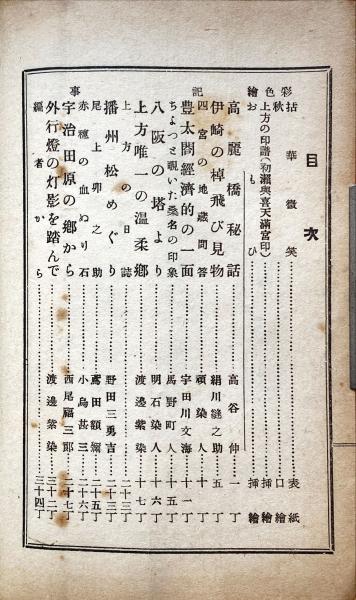 目次
彩色繪
拈華微笑……表紙
秋……口繪
上方の印譜(初瀬與喜天滿宮印)……挿繪
おもひ……挿繪
記事
高麗橋秘話……高谷伸……一丁
伊崎の棹飛び見物……絹川縫之助……五丁
四宮の地藏問答……頑染人……十丁
豊太閤經濟的の一面……宇田川文海……十一丁
ちよつと覗いた桑名の印象……馬野町人……十五丁
八阪の塔より……明石染人……十六丁
上方唯一の温柔郷……渡邊紫染……十七丁
上方の日誌……二十三丁
播州松めぐり……野田三勇吉……二十三丁
尾上卯之助……鳶田額瀬……二十五丁
赤穗の血ぬり石……小烏甚三……二十六丁
宇治田原の郷から……西尾福三郎……二十七丁
外行燈の灯影を踏んで……渡邊紫染……三十二丁
編者から……三十四丁